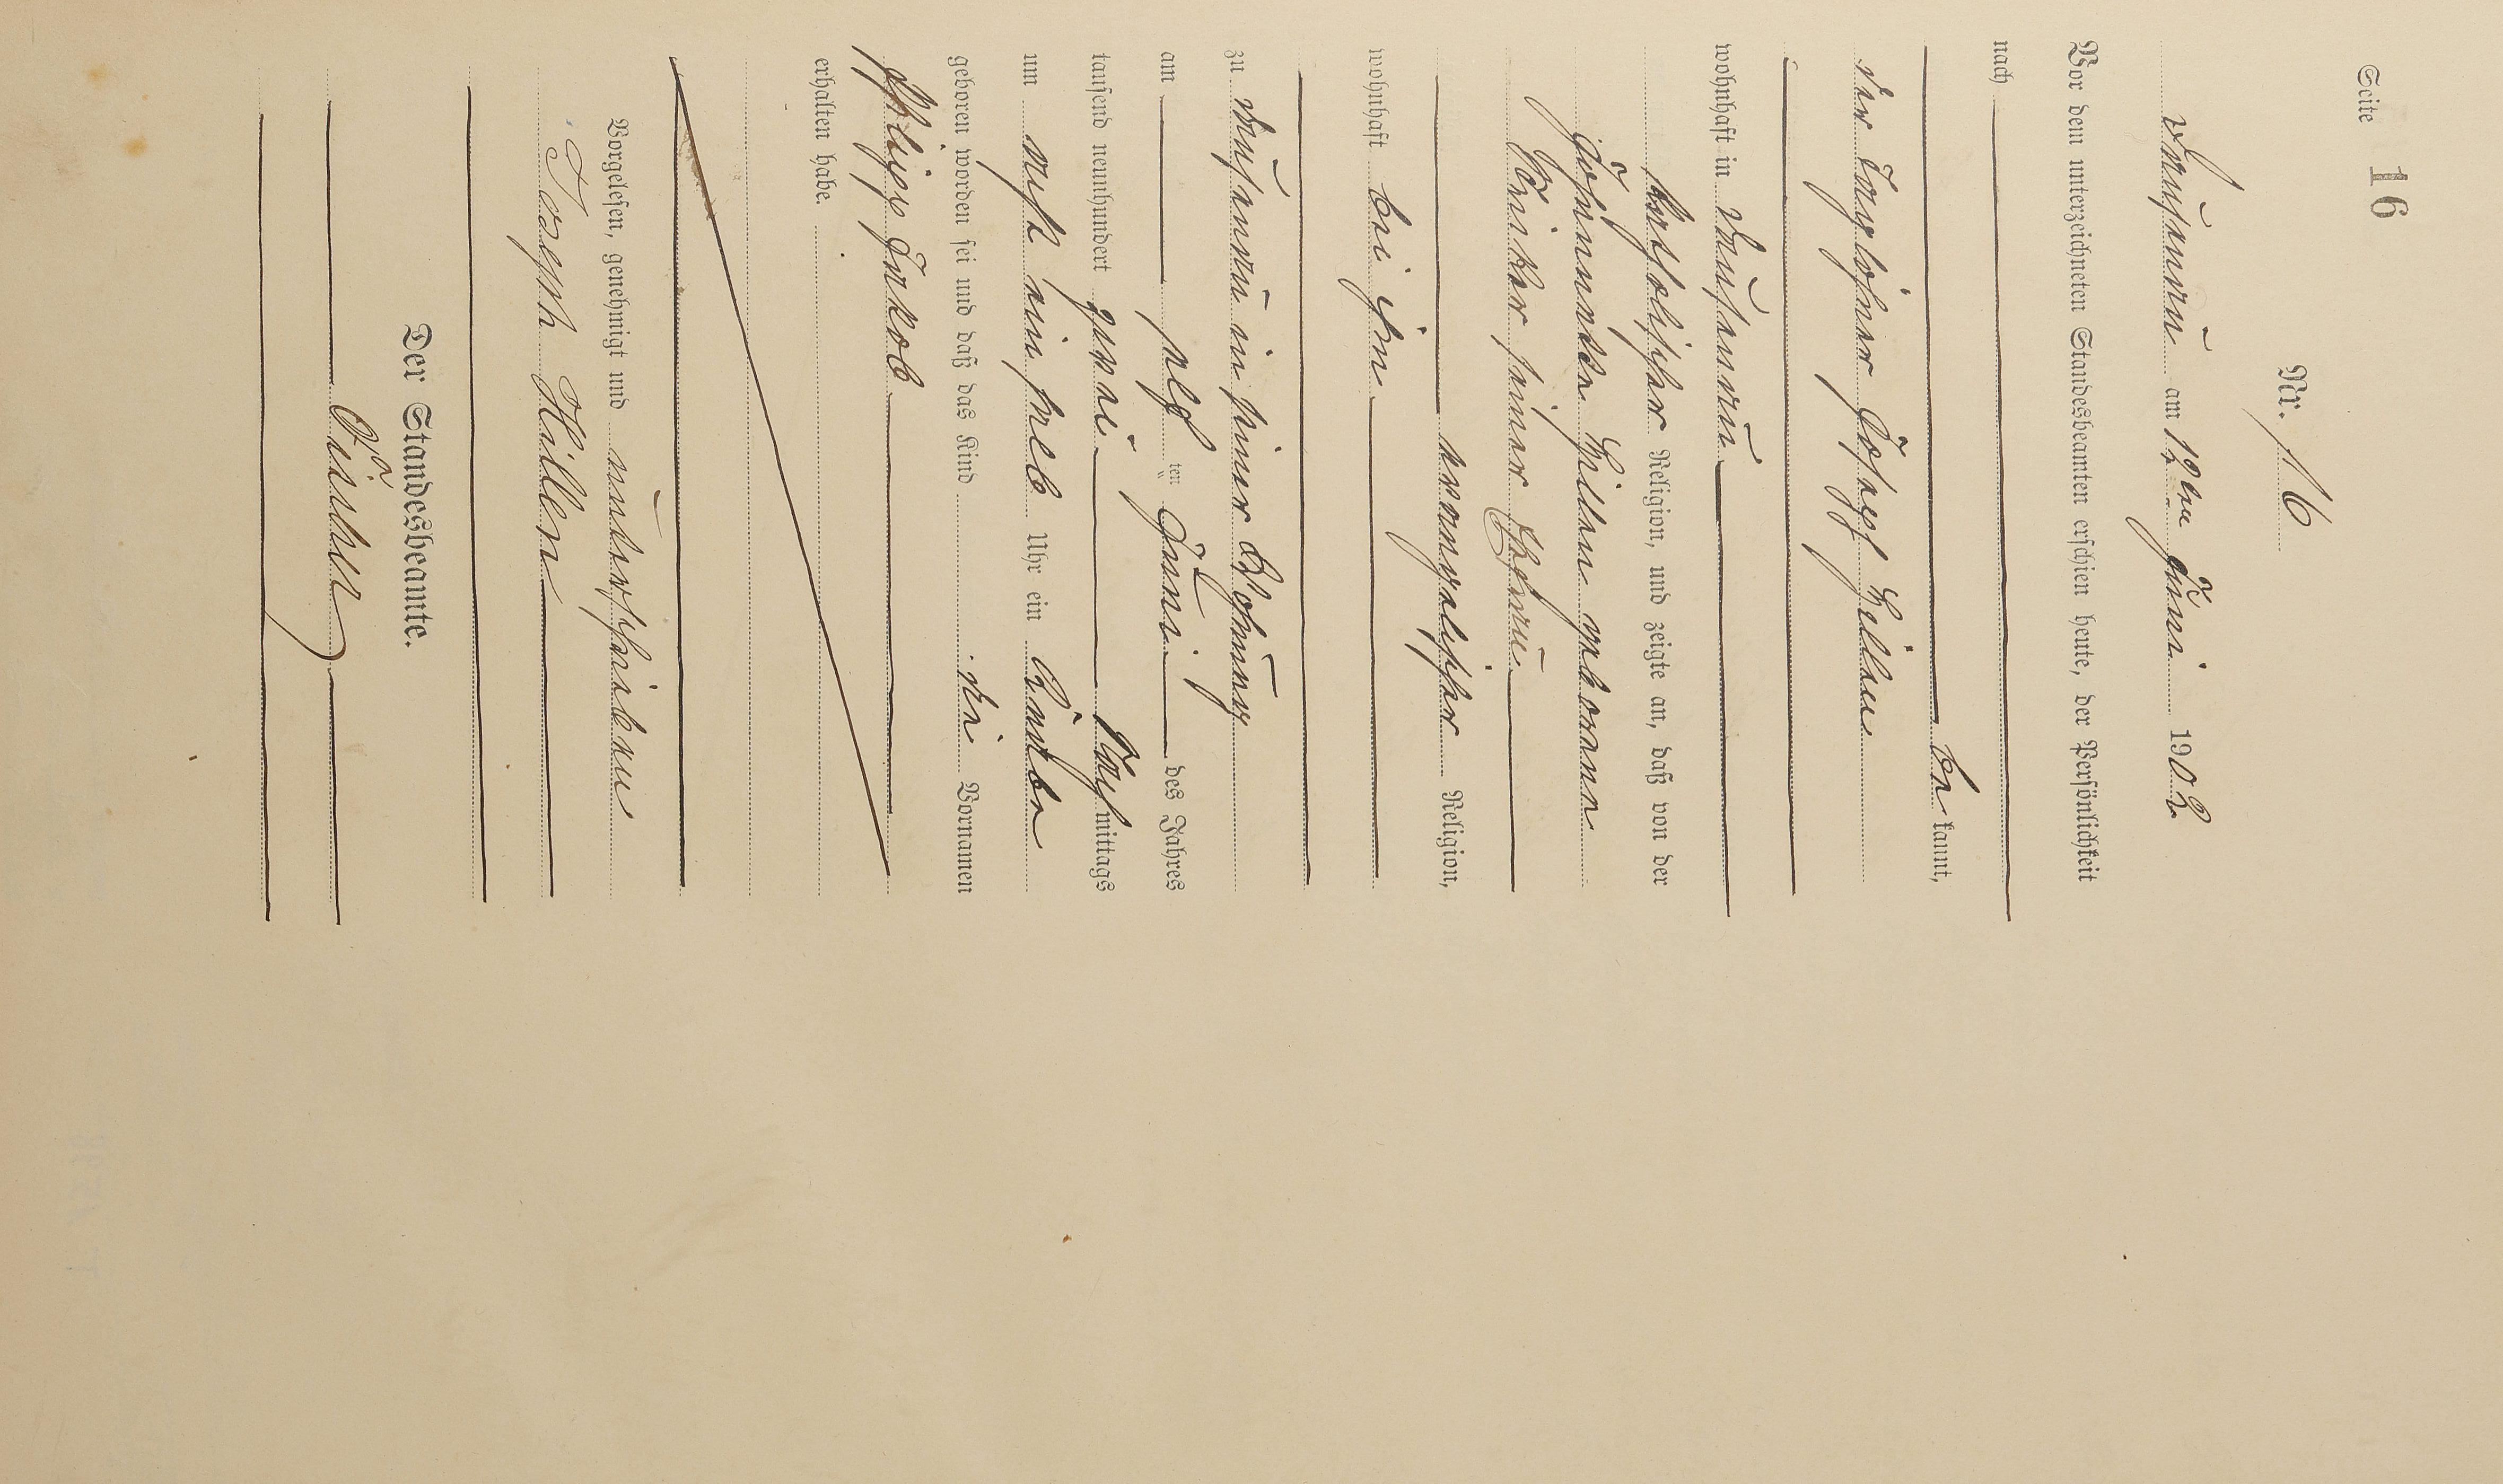 Seite 16
Nr. 16
Dausenau am 12ten Juni 1902
Vor dem unterzeichneten Standesbeamten erschien heute, der Persönlichkeit
nach
be kannt,
der Taglöhner Josef Hillen
wohnhaft in Dausenau
katholischer Religion, und zeigte an, daß von der
Johannette Hillen geborene
seiner Ehefrau
evangelischer Religion,
wohnhaft bei ihm
zu Dausenau in seiner Wohnung
am elf ten Juni des Jahres
tausend neunhundert zwei Nach mittags
um acht ein halb Uhr ein Knabe
geboren worden sei und daß das Kind die Vornamen
Philipp Jakob
erhalten habe.
Vorgelesen, genehmigt und unterschrieben
Joseph Hillen
Der Standesbeamte.